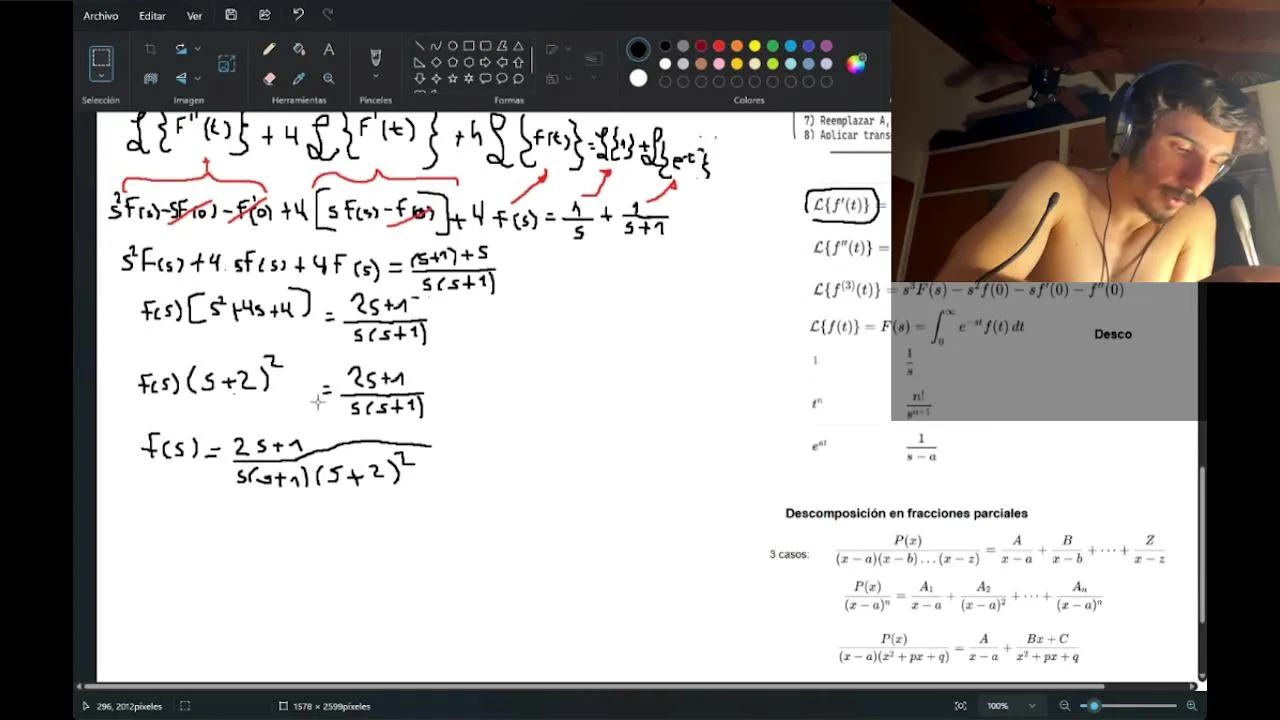 Archivo Editar Ver
Selección Imagen Herramientas Pinceles Formas Colores
ℒ{F''(t)} + 4 ℒ{F'(t)} + 4 ℒ{f(t)} = ℒ{1} + ℒ{e^{-t}}
s²F(s) - sF(0) - F'(0) + 4[sF(s) - f(0)] + 4 f(s) = 1/s + 1/(s+1)
s²F(s) + 4 sF(s) + 4F(s) = ((s+1)+s)/(s(s+1))
F(s)[s²+4s+4] = (2s+1)/(s(s+1))
F(s)(s+2)² = (2s+1)/(s(s+1))
f(s) = (2s+1)/(s(s+1)(s+2)²)
7) Reemplazar A,
8) Aplicar trans
ℒ{f'(t)} =
ℒ{f''(t)} =
ℒ{f^(3)(t)} = s³F(s) − s²f(0) − sf'(0) − f''(0)
ℒ{f(t)} = F(s) = ∫₀^∞ e^{−st} f(t) dt
Desco
1 1/s
tⁿ n!/s^{n+1}
e^{at} 1/(s − a)
Descomposición en fracciones parciales
3 casos: P(x)/((x − a)(x − b)…(x − z)) = A/(x − a) + B/(x − b) + ⋯ + Z/(x − z)
P(x)/(x − a)ⁿ = A₁/(x − a) + A₂/(x − a)² + ⋯ + Aₙ/(x − a)ⁿ
P(x)/((x − a)(x² + px + q)) = A/(x − a) + (Bx + C)/(x² + px + q)
296, 2012píxeles 1578 × 2599píxeles 100%